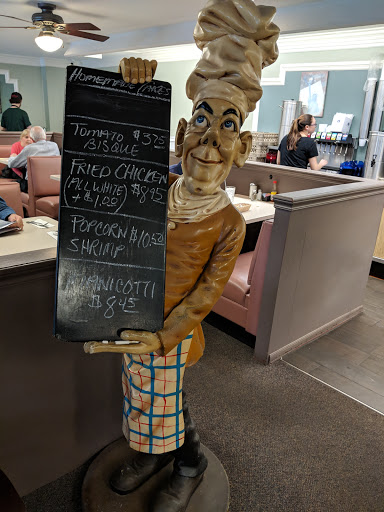 HOMEMADE CAKES
TOMATO $3.75
BISQUE
FRIED CHICKEN
(ALL WHITE) $8.45
+ $1.00
POPCORN $10.50
SHRIMP
MANICOTTI
$8.45